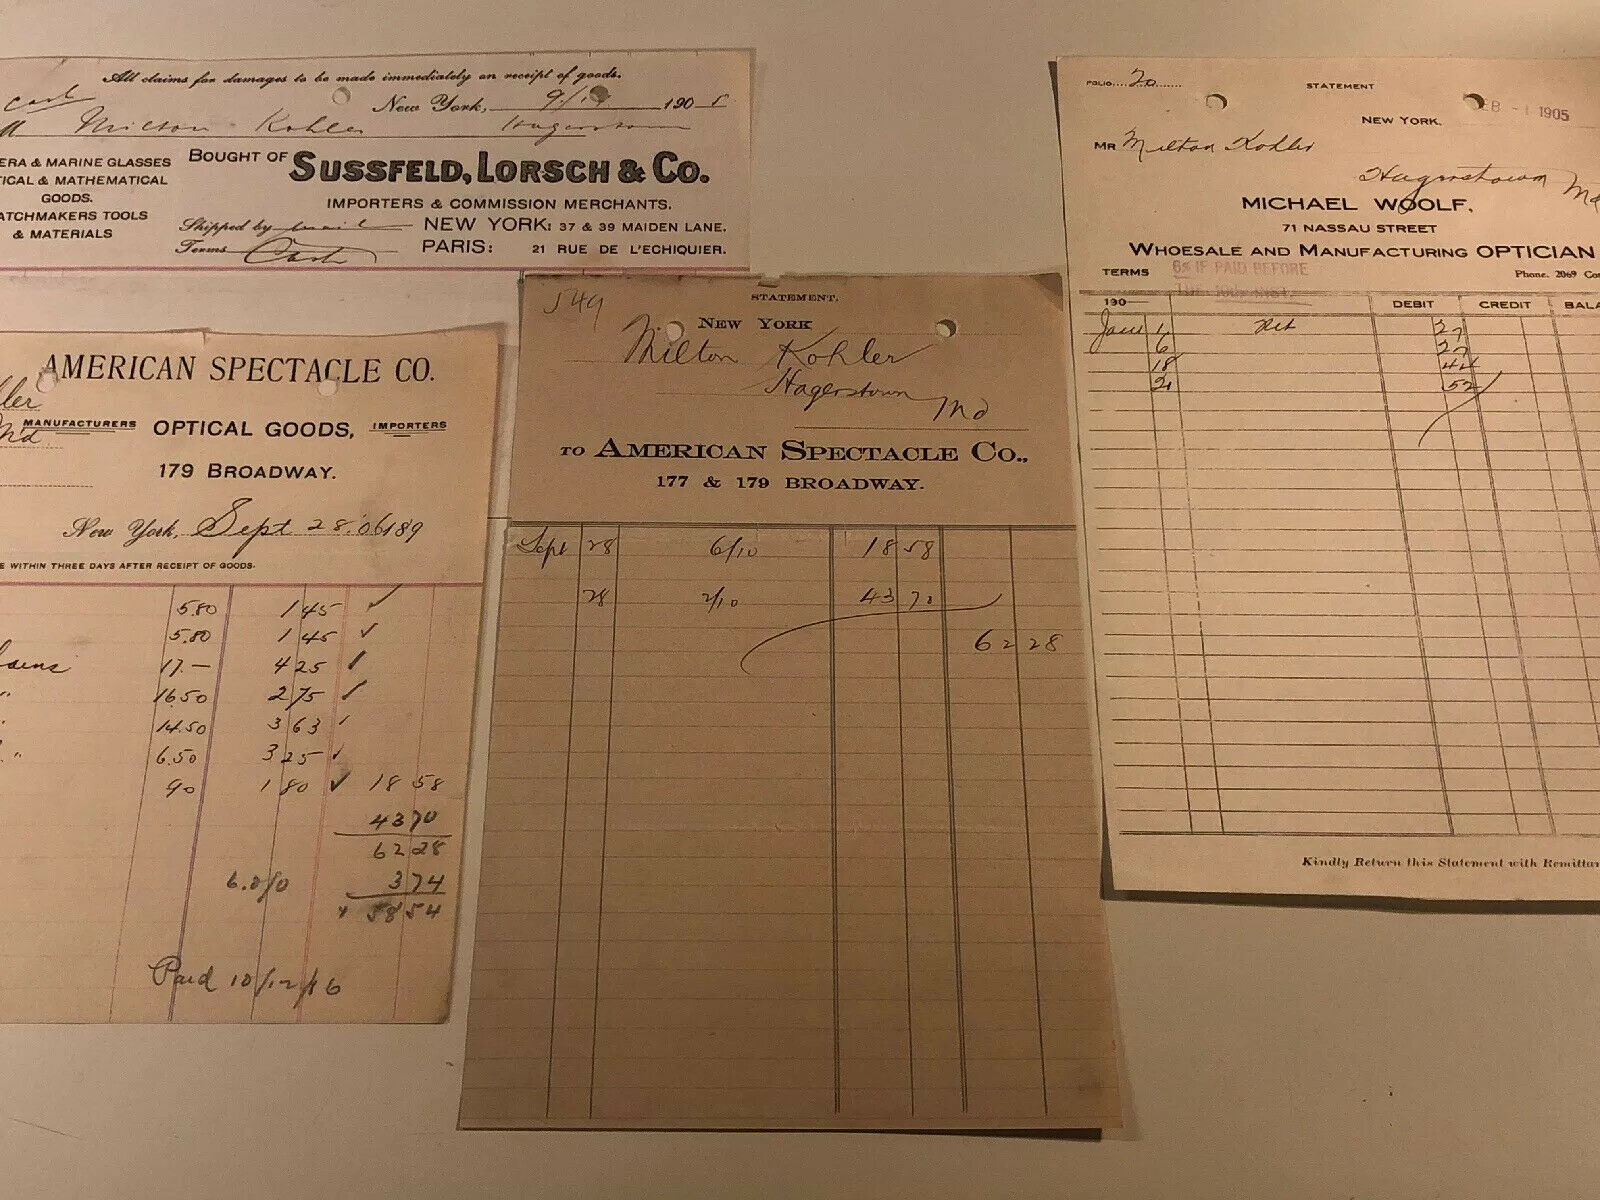 All claims for damages to be made immediately on receipt of goods.
Cash
New York, 9/ 190
Milton Kohler Hagerstown
ERA & MARINE GLASSES
TICAL & MATHEMATICAL
GOODS.
ATCHMAKERS TOOLS
& MATERIALS
BOUGHT OF SUSSFELD, LORSCH & CO.
IMPORTERS & COMMISSION MERCHANTS.
Shipped by mail NEW YORK: 37 & 39 MAIDEN LANE.
Terms Cash PARIS: 21 RUE DE L'ECHIQUIER.
AMERICAN SPECTACLE CO.
ler
Md
MANUFACTURERS OPTICAL GOODS, IMPORTERS
179 BROADWAY.
New York, Sept 28.06 189
E WITHIN THREE DAYS AFTER RECEIPT OF GOODS.
5.80 1 45 ✓
5.80 1 45 ✓
17 — 4 25 ✓
" 16.50 2 75 ✓
" 14.50 3 63 ✓
" 6.50 3 25 ✓
90 1 80 ✓ 18 58
43 70
62 28
6.0/0 3 74
58 54
Paid 10/12/06
549
STATEMENT.
NEW YORK
Milton Kohler
Hagerstown
Md
TO AMERICAN SPECTACLE CO.,
177 & 179 BROADWAY.
Sept 28 6/10 18 58
28 2/10 43 70
62 28
FOLIO.... 20 ........
STATEMENT
NEW YORK, EB -1 1905
MR Milton Kohler
Hagerstown Md
MICHAEL WOOLF,
71 NASSAU STREET
WHOESALE AND MANUFACTURING OPTICIAN
TERMS 6% IF PAID BEFORE
Phone. 2069 Co
190— DEBIT CREDIT BALA
Jan 1 Ret 27
6 27
18 44
21 52
Kindly Return this Statement with Remittan